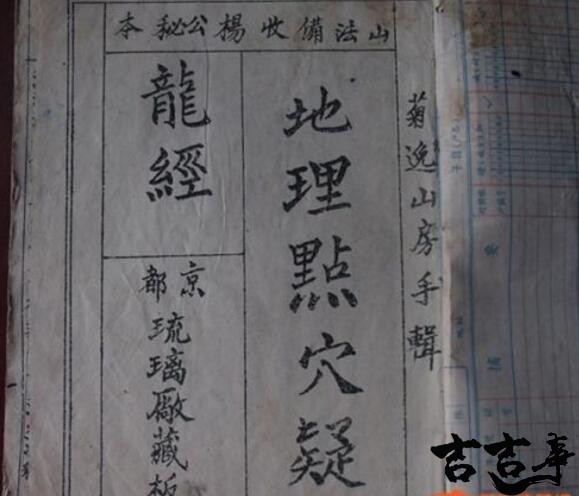 山法備收楊公秘本
菊逸山房手輯
地理點穴疑
龍經
京都
琉璃厰藏板
吉吉事